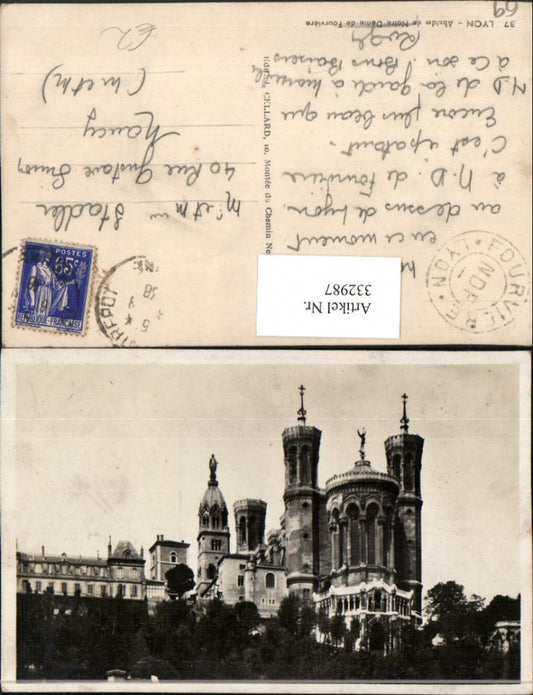 37 LYON - Abside de Notre Dame de Fourvière
en ce moment
au dessus de Lyon
à N.D. de Fourvière
C'est épatant.
Encore plus beau que
N.D. de la garde à Marseille
à ce soir. Bons Baisers
Roger
CELLARD, 10, Montée du Chemin Ne
Mr et Mme Stadler
40 Rue Gustave Simon
Nancy
(M et M)
POSTES
65c
REPUBLIQUE-FRANÇAISE
FOURVIERE
LYON
N.D.
Artikel Nr.
332987
69
£2